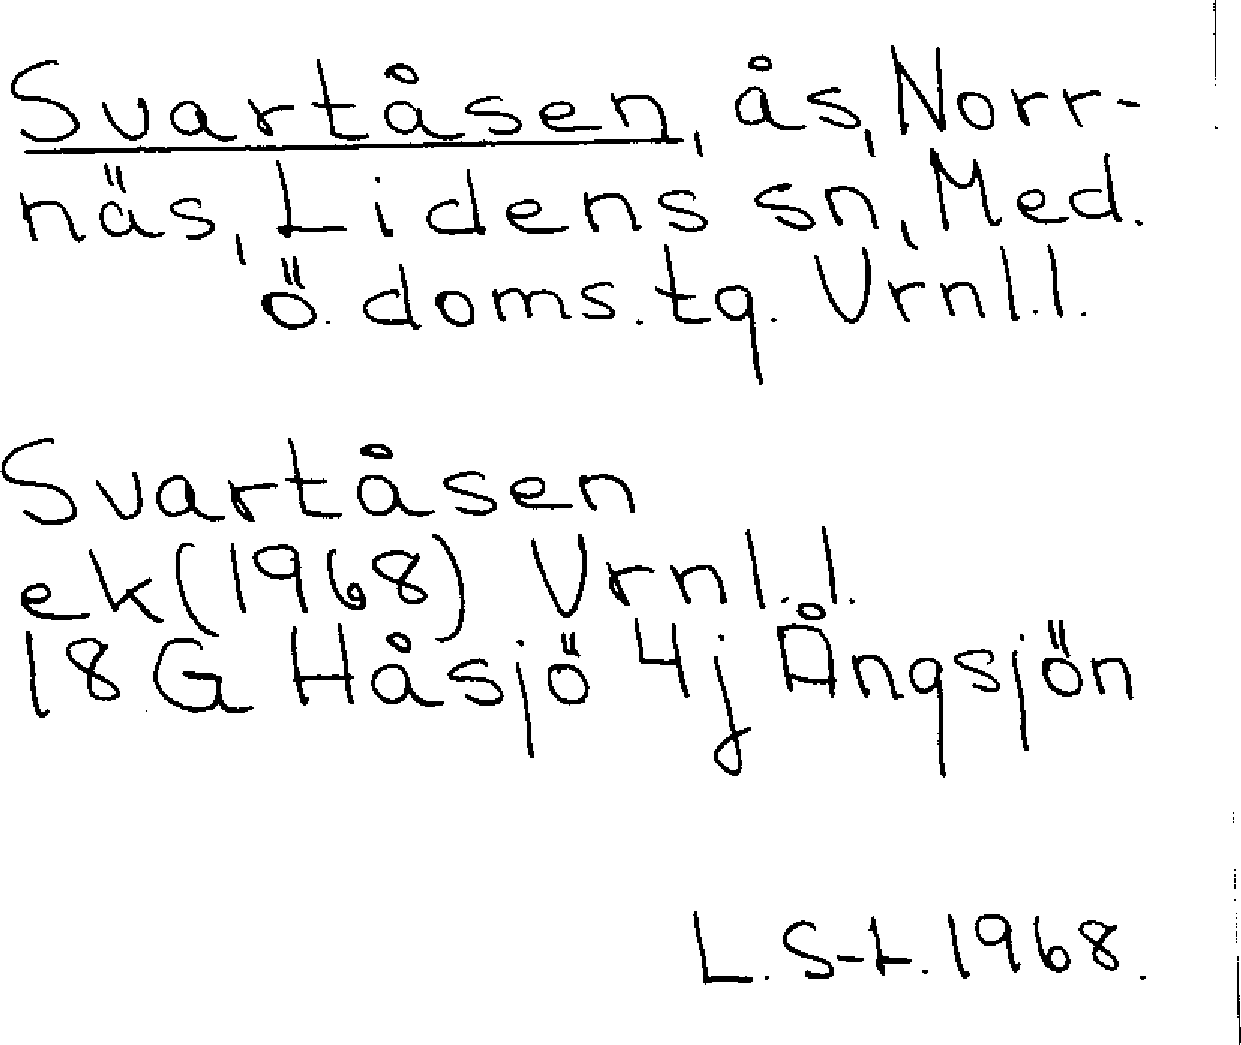 Svartåsen, ås, Norr-
näs, Lidens sn, Med.
ö. doms. tg. Vrnl.l.
Svartåsen
ek (1968) Vrnl.l.
18 G Håsjö 4j Ångsjön
L. S-L. 1968.